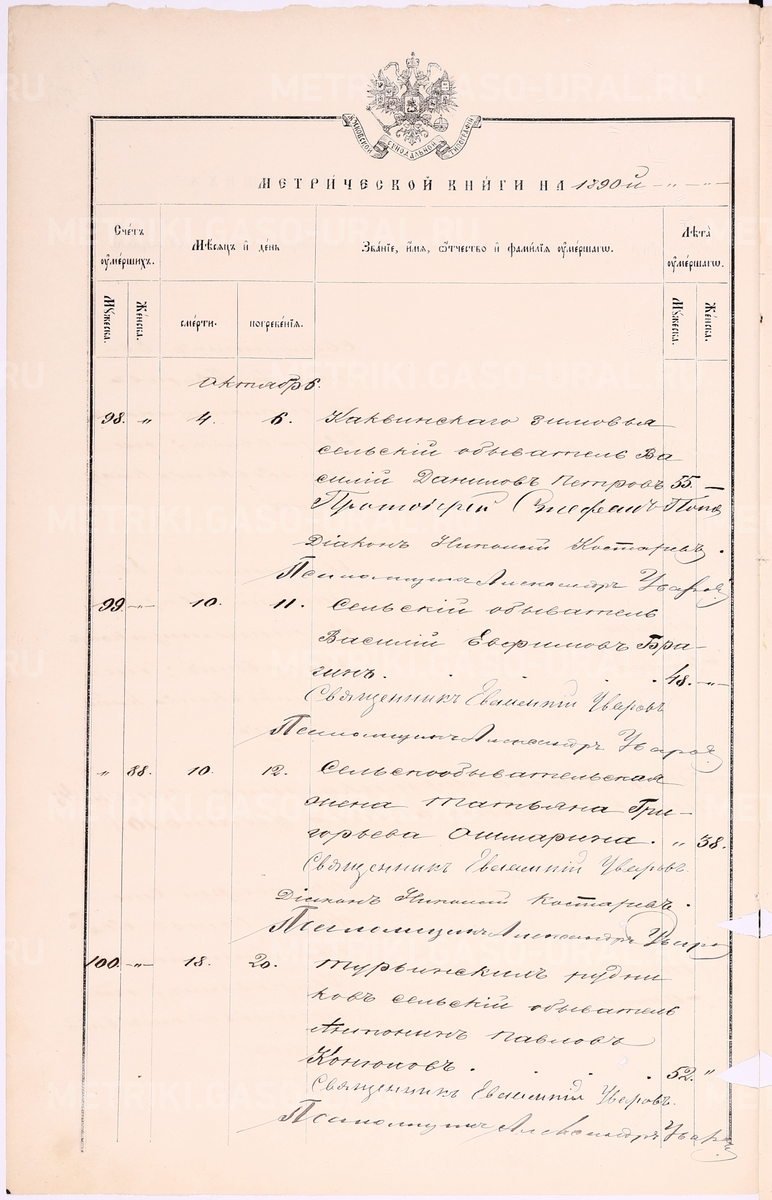 МЕТРИ́ЧЕСКОЙ КНИ́ГИ НА 1890й
Сче́тъ ᲂуме́ршихъ.
Мѣ́сяцъ и де́нь
Зва́нїе, и́мя, ѻ́тчество и фами́лїя ᲂуме́ршагѡ.
Лѣта̀ ᲂуме́ршагѡ.
Мꙋжеска.
Же́нска.
сме́рти.
погребе́нїя.
Мꙋжеска.
Же́нска.
Октябрь.
98. " 4. 6. Каквинскаго зимовья
сельскій обыватель Ва-
силій Даниловъ Петровъ 55 —
Протоіерей Стефанъ Попо
Діаконъ Николай Костаревъ.
Псаломщикъ Александръ Уваров
99. —"— 10. 11. Сельскій обыватель
Василій Евфимовъ Бра-
гинъ. 48. —"—
Священникъ Евлампій Уваровъ
Псаломщикъ Александръ Уваров
" 88. 10. 12. Сельскообывательская
жена Татьяна Гри-
горьева Ошмарина. " 38.
Священникъ Евлампій Уваровъ.
Діаконъ Николай Костаревъ.
Псаломщикъ Александръ Уваро
100. —"— 18. 20. Турьинскихъ рудни
ковъ сельскій обыватель
Антонинъ Павловъ
Конюховъ. 52. "
Священникъ Евлампій Уваровъ.
Псаломщикъ Александръ Уваров